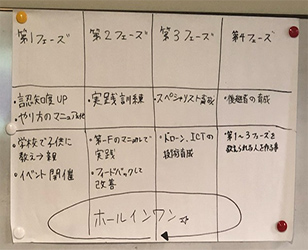 第1フェーズ
第2フェーズ
第3フェーズ
第4フェーズ
・認知度UP
やり方のマニュアル化
・実践訓練
・スペシャリスト育成
・後継者の育成
・学校で子供に
教え→親
・イベント開催
・第一Fのマニュアルで
実践
・フィードバックして
改善
・ドローン、ICTの
技術育成
第1〜3フェーズを
教えられる人を作る
ホールインワン☆